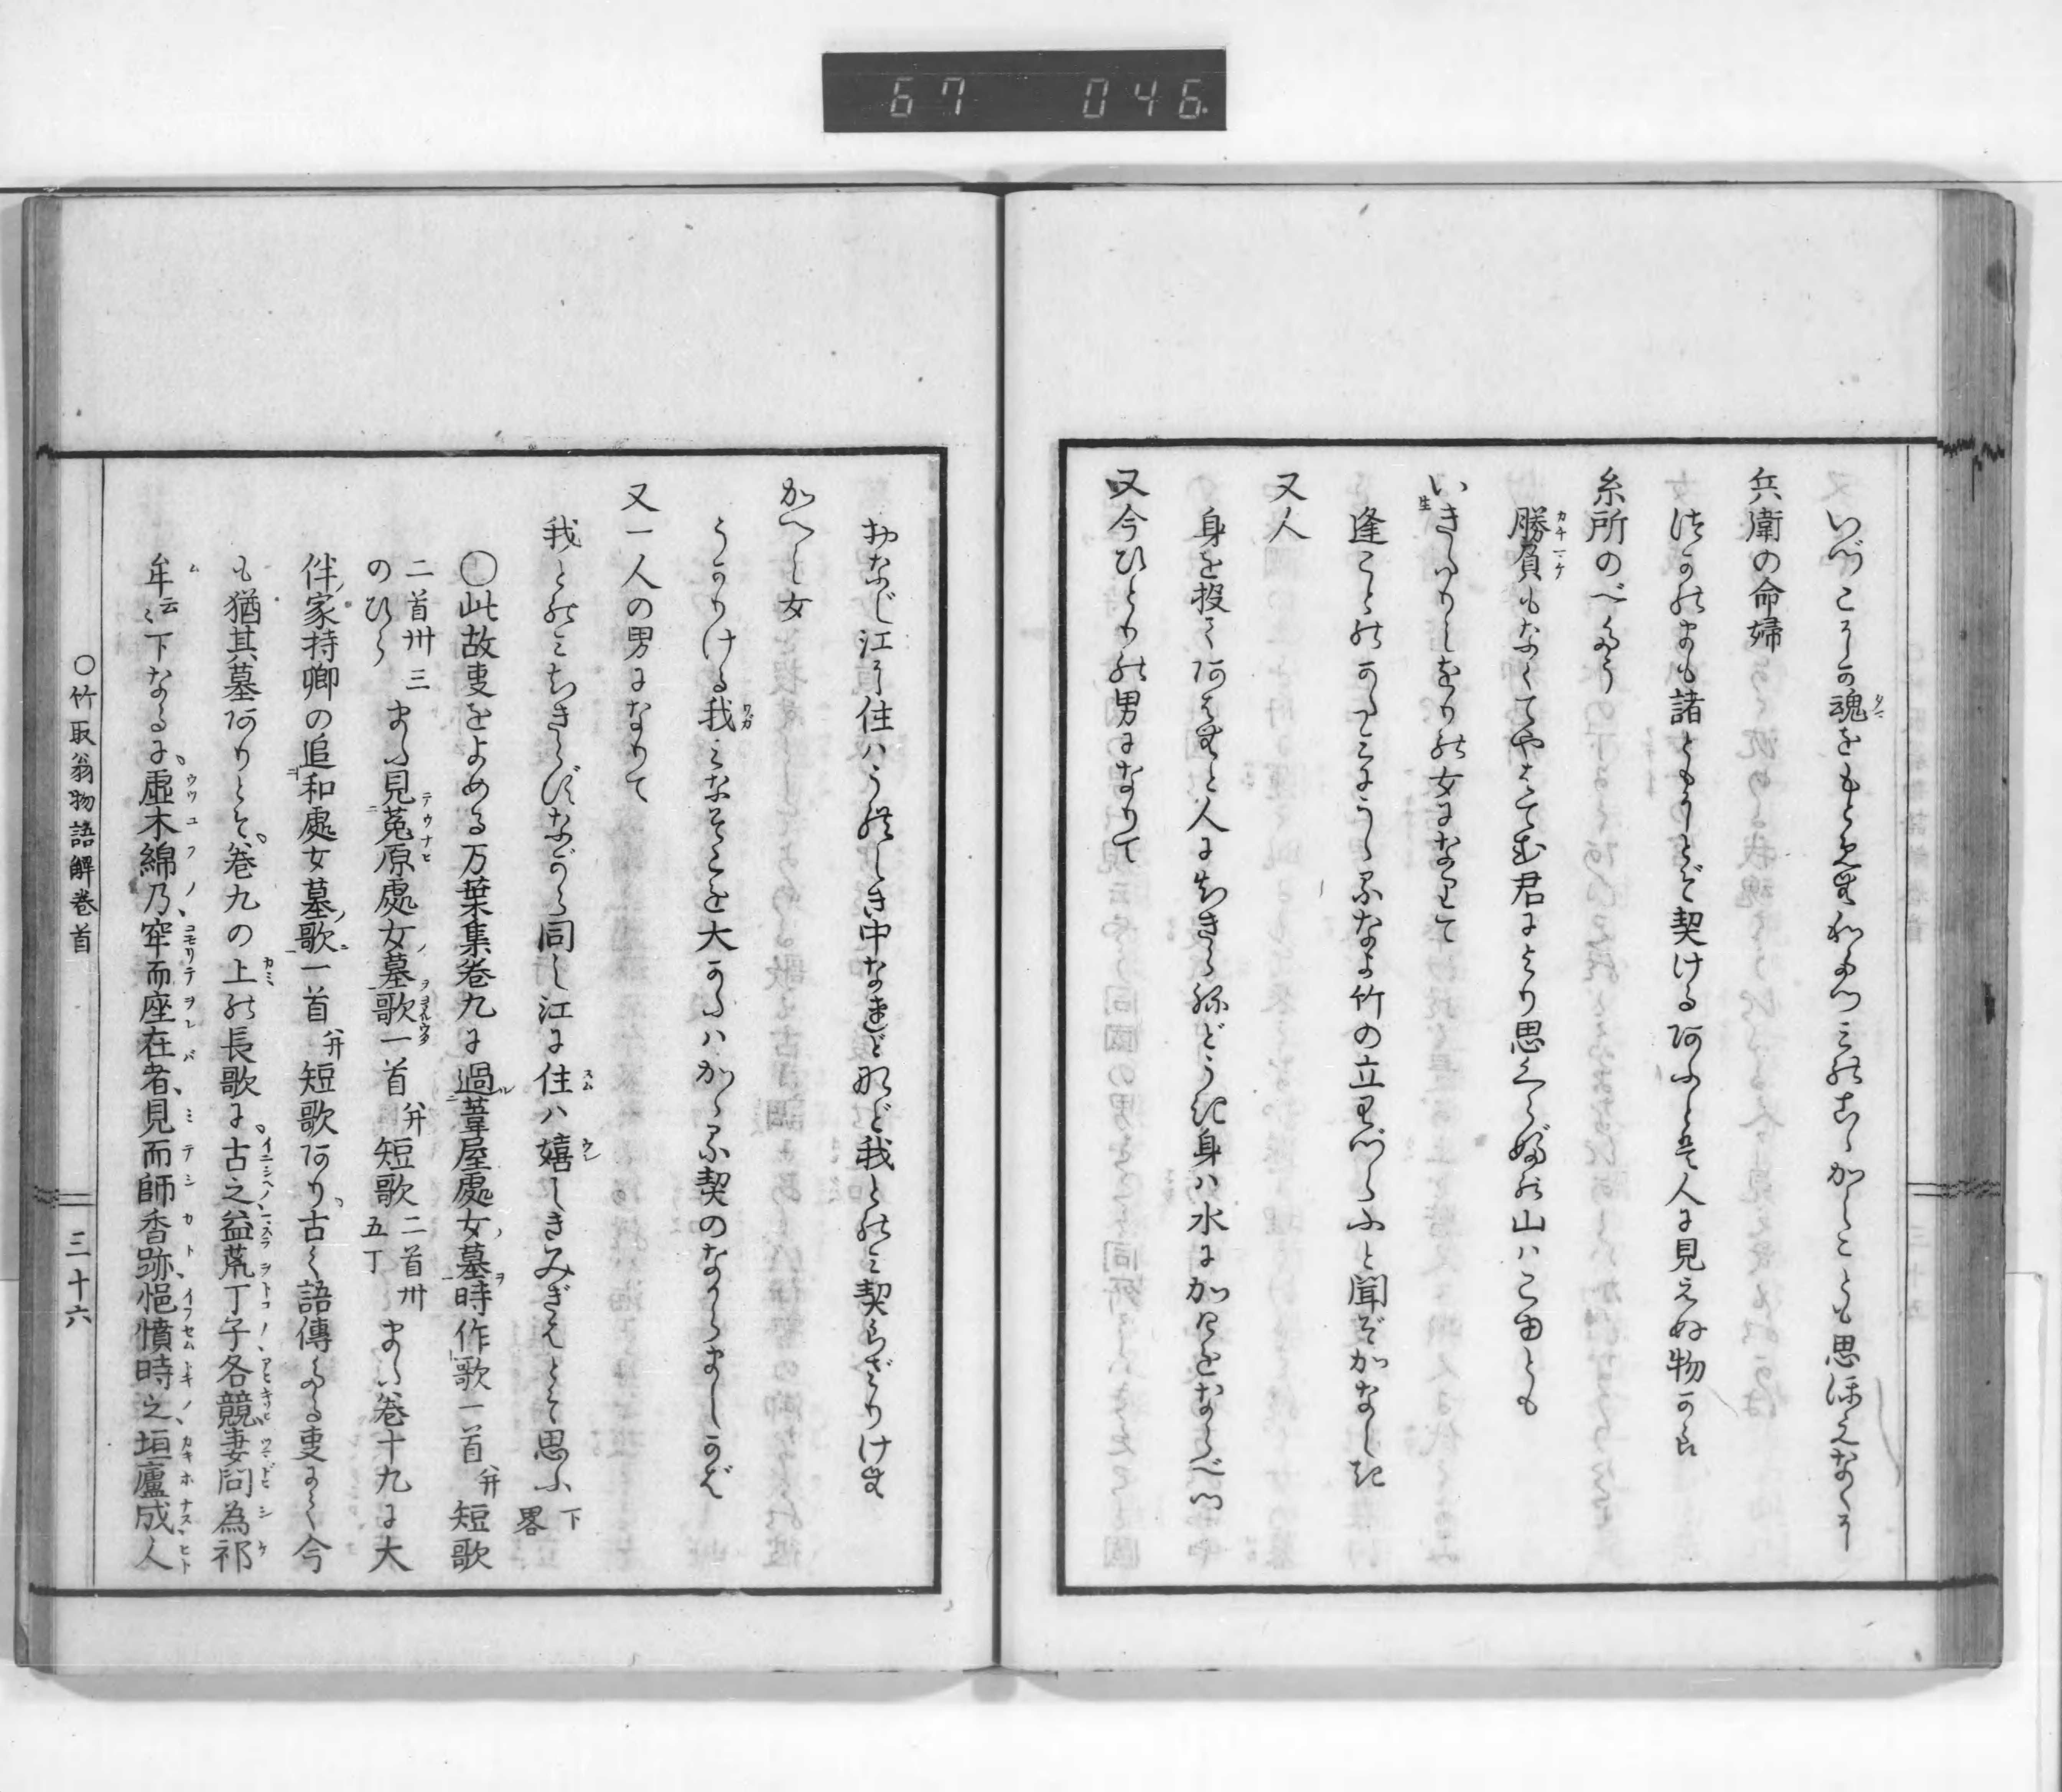 67 046
いづこにか魂をもとめむわたつみのこゝかしことも思ほえなくに
兵衛の命婦
つかのまも諸ともにとぞ契けるあふとは人に見えぬ物から
糸所のべたう
勝負もなくてやはてむ君により思くらぶの山はこゆとも
いきたりしをりの女になりて
逢ことのかたみにうゝるなよ竹の立わづらふと聞ぞかなしき
又人
身を投てあはむと人にちぎらねどうき身は水にかげをならべつ
又今ひとりの男になりて
おなじ江に住はうれしき中なれどなど我とのみ契らざりけむ
かへし女
うかりける我みなそこを大かたはかゝる契のなからましかば
又一人の男になりて
我とのみちぎらずながら同し江に住は嬉しきみぎはとそ思ふ 下畧
〇此故事をよめる万葉集巻九に過葦屋處女墓時作歌一首并短歌
二首卅三のひら また見菟原處女墓歌一首并短歌 二首卅五丁 また巻十九に大
伴家持卿の追和處女墓歌一首并短歌あり古く語傳たる事にて今
も猶其墓ありとそ巻九の上の長歌に古之益荒丁子各競妻問為祁
牟云〻下なるに虚木綿乃窂而座在者見而師香跡悒憤時之垣廬成人
〇竹取翁物語解巻首
三十六